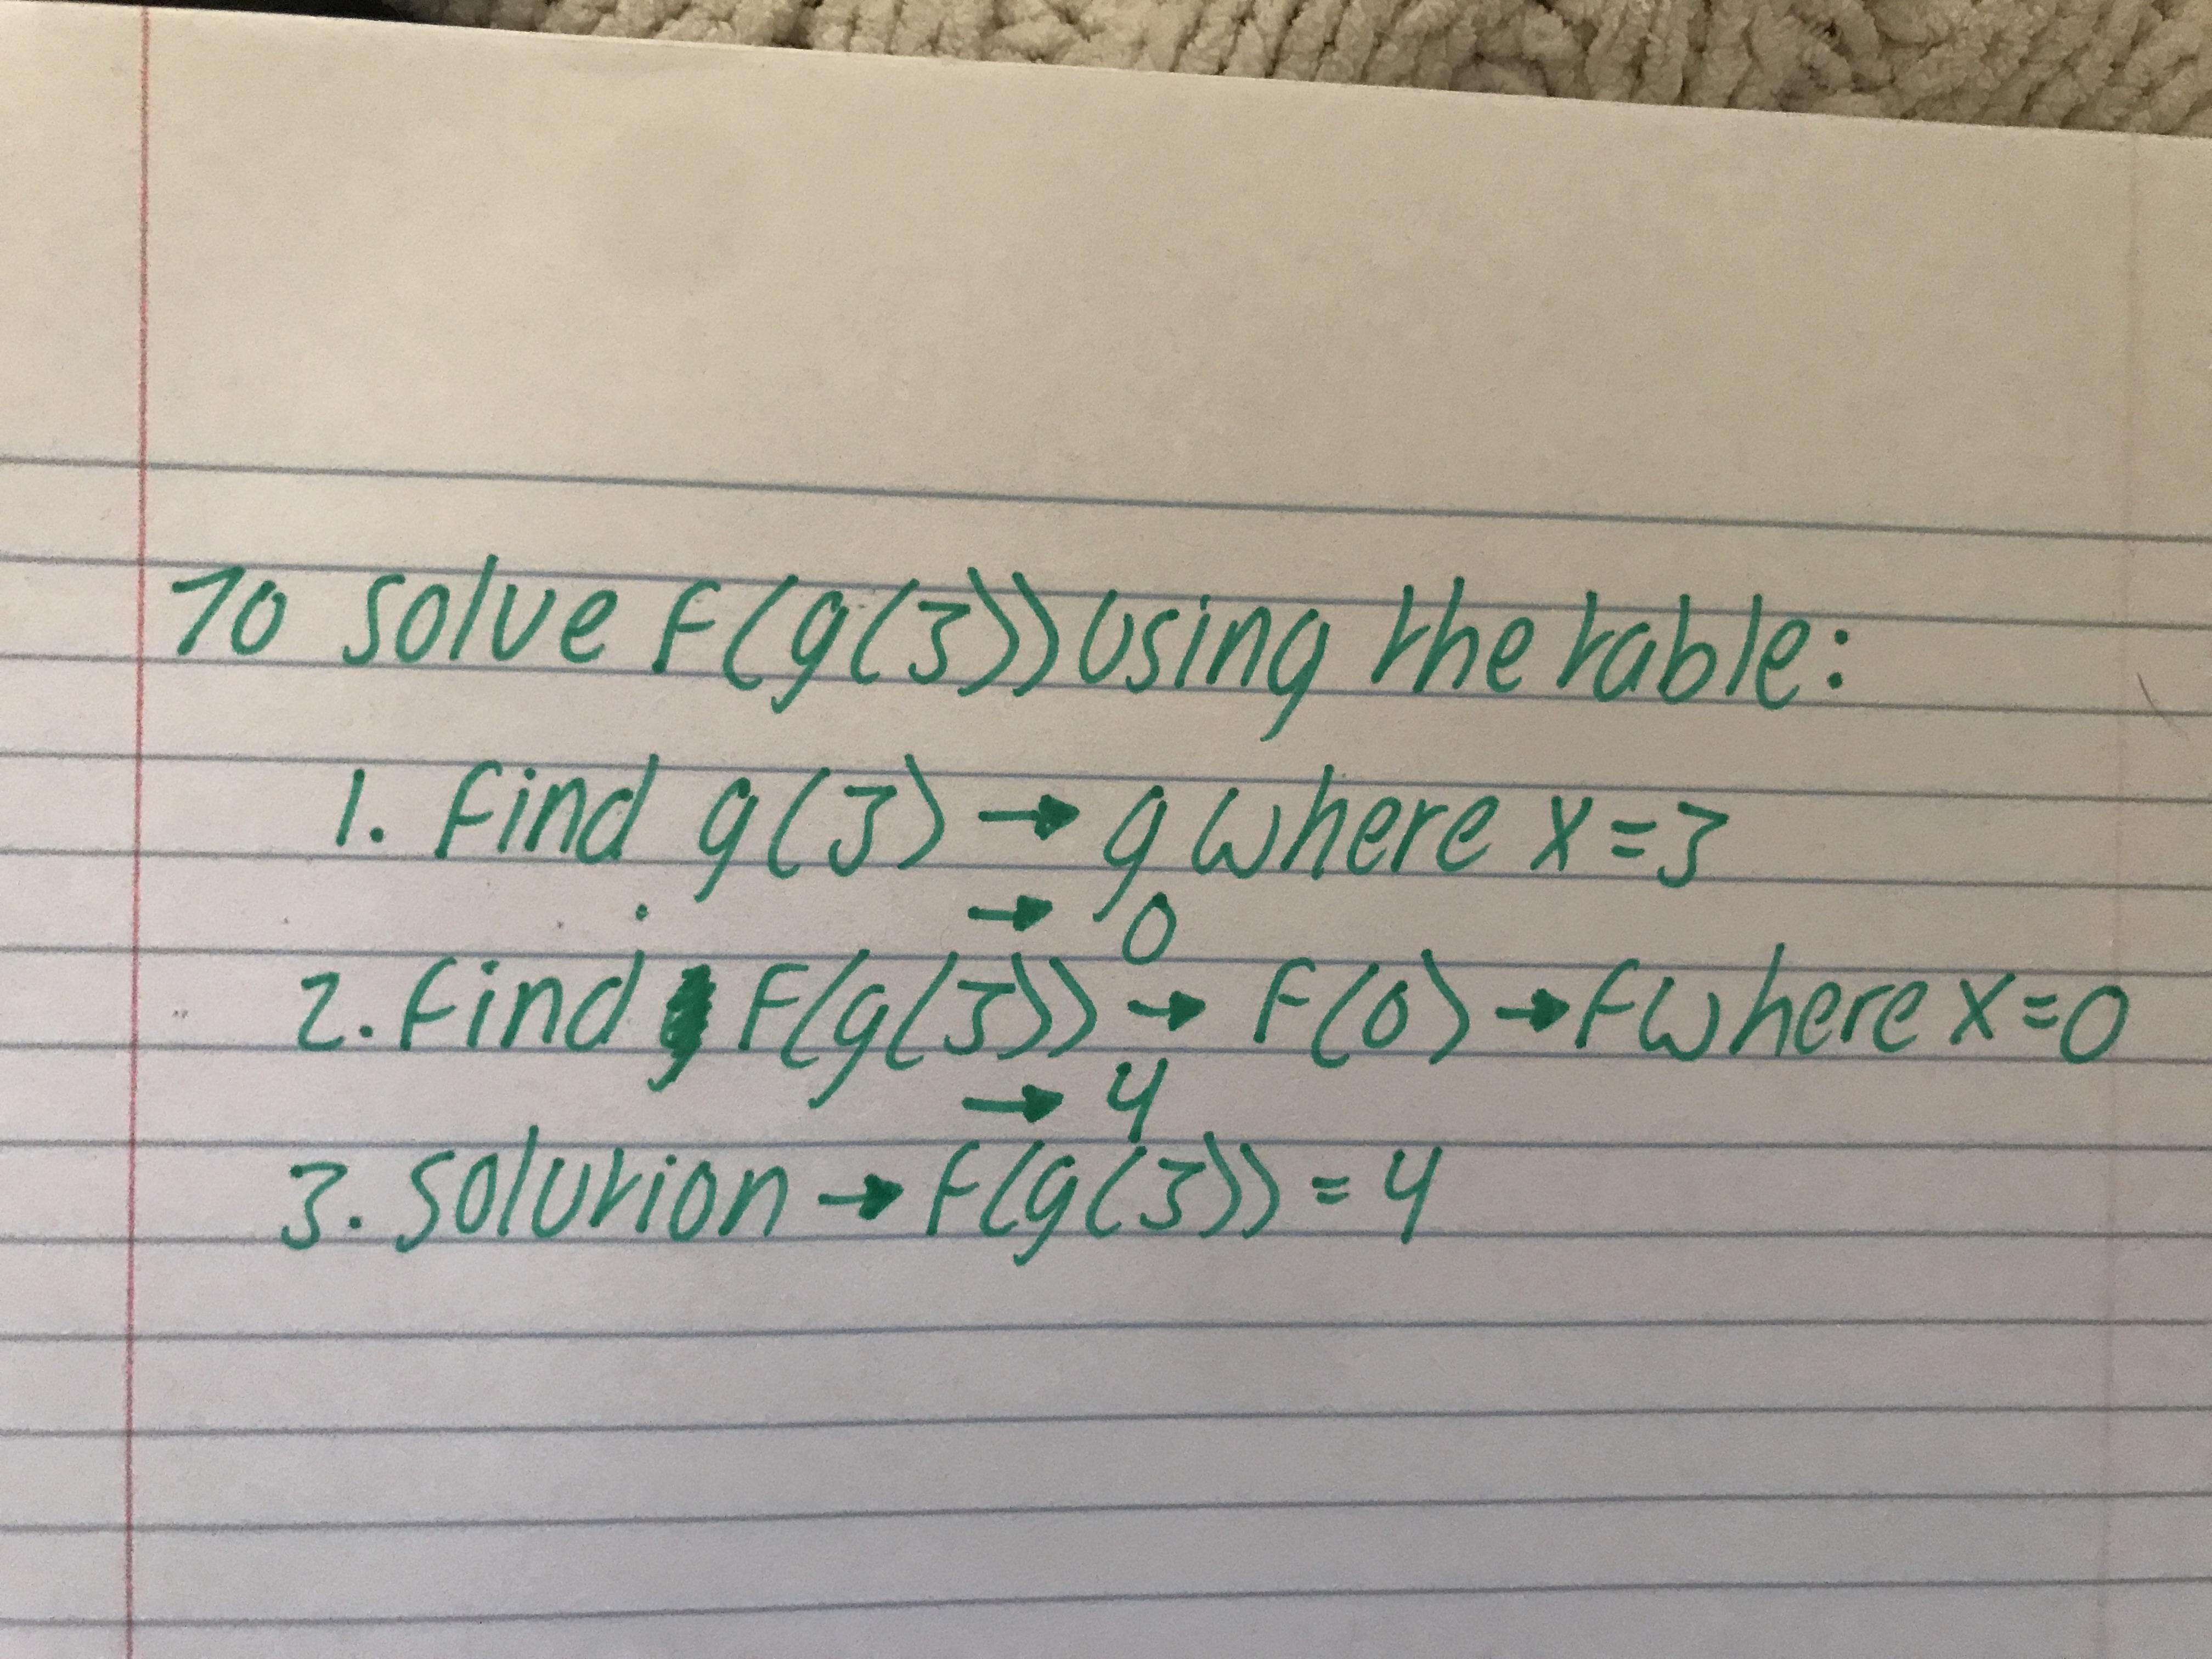 To solve F(g(3)) using the table:
1. Find g(3) → g where x=3
→ 0
2. Find F(g(3)) → F(0) → F where x=0
→ 4
3. Solution → F(g(3)) = 4